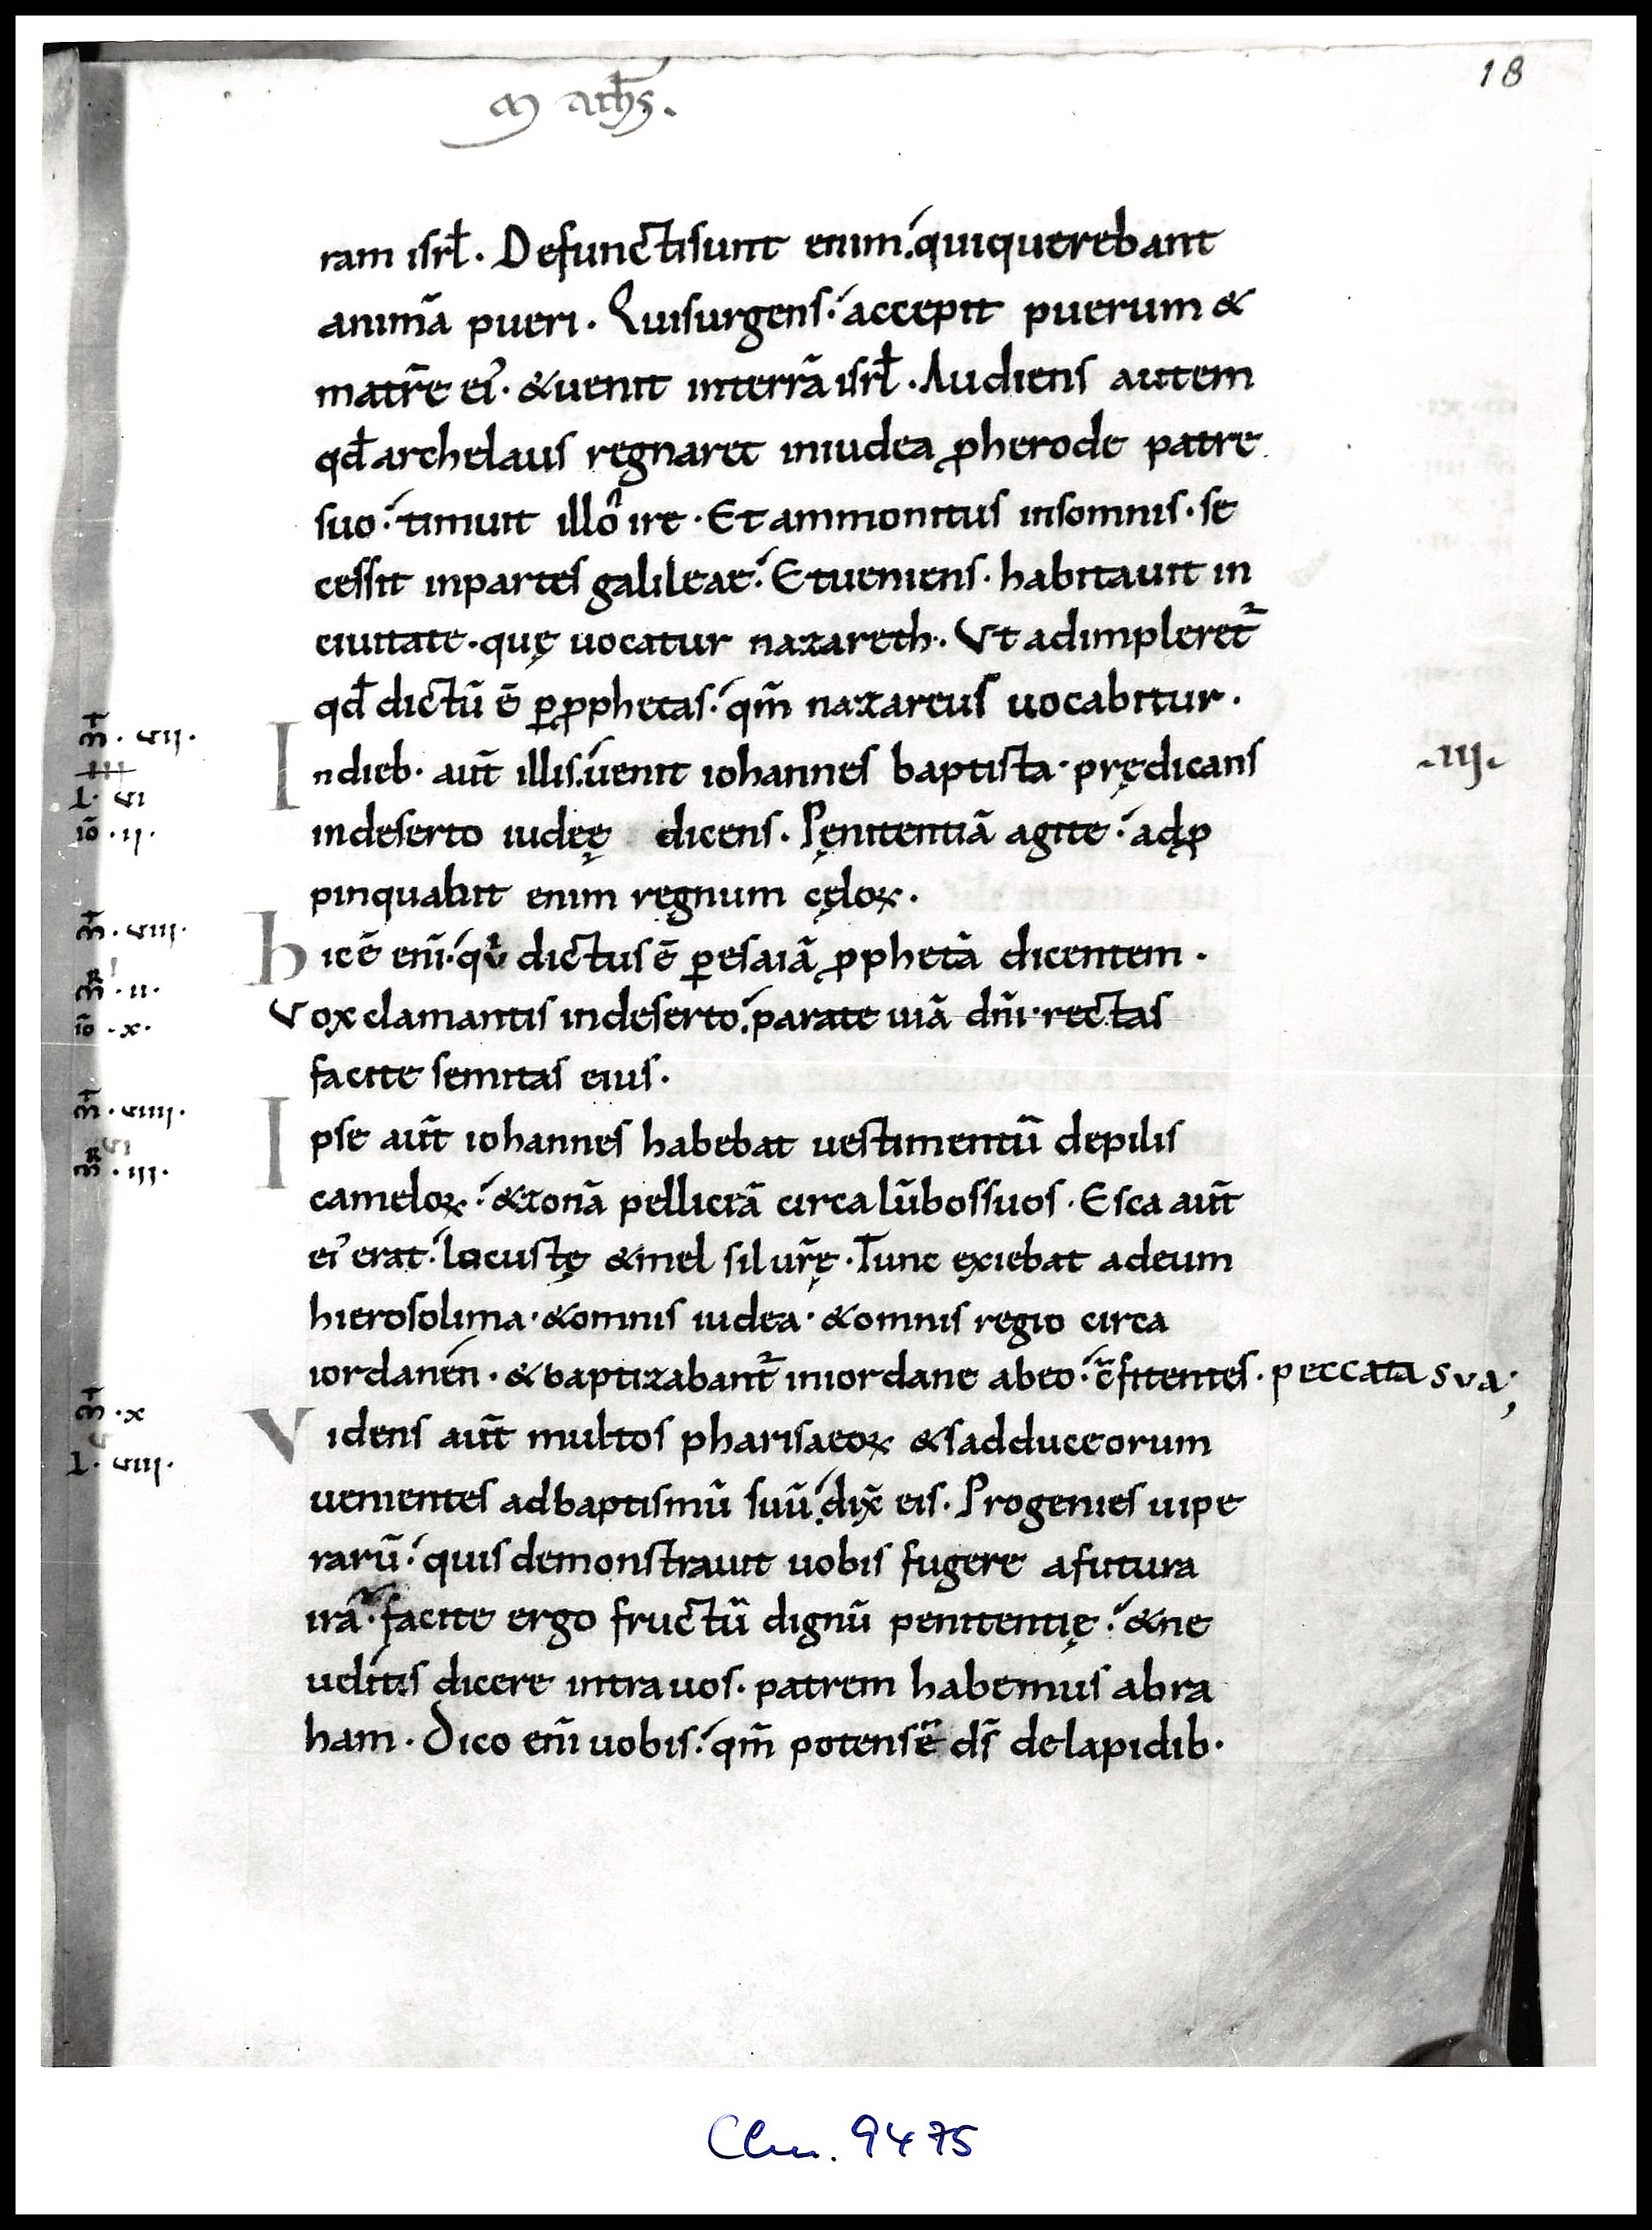 18
Maths.
ram isrł. Defunctisunt enim. quiquerebant
animā pueri. Quisurgens. accepit puerum &
matrē ei'. &uenit interrā isrł. Audiens autem
qđ archelaus regnaret iniudea ꝓherode patre
suo. timuit illo ire. Et ammonitus insomnis. se
cessit inpartes galileae. Etueniens. habitauit in
ciuitate. quę uocatur nazareth. Vt adimpleret᷑
qđ dictū ē ꝑꝓphetas. qm̄ nazareus uocabitur.
m̄t. vii.
iii
L. vi
iō. ii.
Indieb. aūt illis. uenit iohannes baptista. prędicans
.iii.
indeserto iudeę dicens. Pęnitentiā agite. adꝓ
pinquabit enim regnum cęloꝝ.
m̄t. viii.
m̄r. ii.
iō. x.
hicē eni̅. qui dictusē ꝑesaiā ꝓphetā dicentem.
Vox clamantis indeserto. parate uiā dn̄i. rectas
facite semitas eius.
m̄t. viiii.
m̄r. iii.
Ipse aūt iohannes habebat uestimentū depilis
cameloꝝ. &zonā pelliciā circa lūbossuos. Esca aūt
ei' erat. locustę &mel silur̄ę. Tunc exiebat adeum
hierosolima. &omnis iudea. &omnis regio circa
iordanen. &baptizabant᷑ iniordane abeo. c̄fitentes. peccata sua;
m̄t. x
L. viii.
Videns aūt multos pharisaeoꝝ &sadduceorum
uenientes adbaptismū suū. dix̄ eis. Progenies uipe
rarū. quis demonstrauit uobis fugere afutura
irā. facite ergo fructū dignū penitentię. &ne
uelitis dicere intrauos. patrem habemus abra
ham. Dico eni̅ uobis. qm̄ potensē ds̄ delapidib.
Clm. 9475